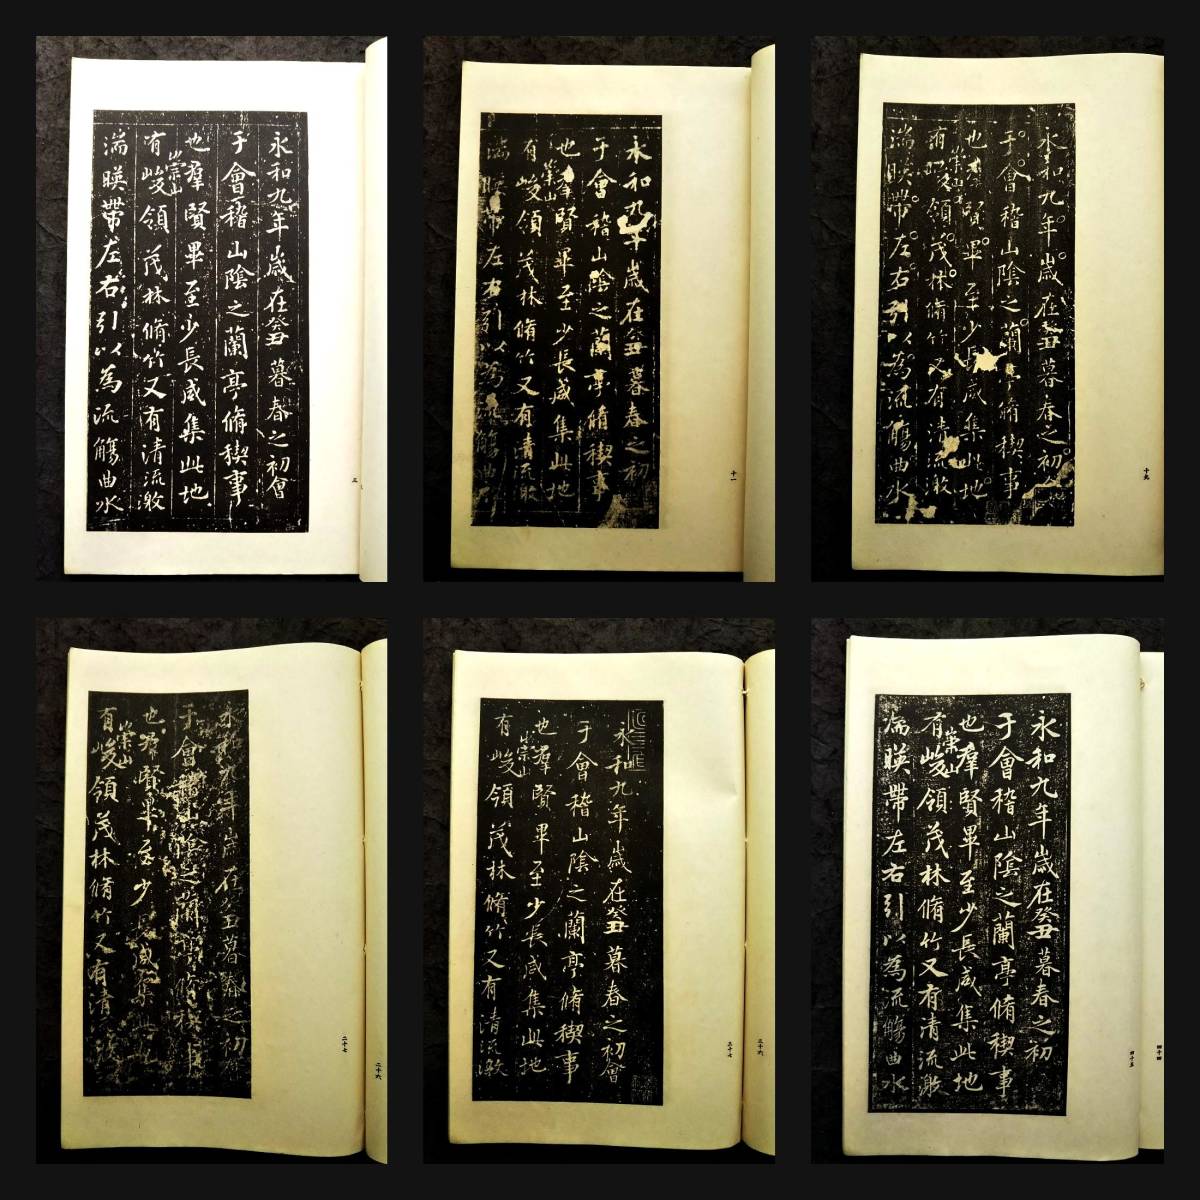 永和九年歲在癸丑暮春之初會
于會稽山陰之蘭亭脩稧事
也羣賢畢至少長咸集此地
崇山
有峻領茂林脩竹又有清流激
湍暎帶左右引以為流觴曲水
三
永和九年歲在癸丑暮春之初
于會稽山陰之蘭亭脩稧事
也羣賢畢至少長咸集此地
崇山
有峻領茂林脩竹又有清流激
湍暎帶左右引以為流觴曲水
十一
永和九年歲在癸丑暮春之初
于會稽山陰之蘭亭脩稧事
也賢畢至少長咸集此地
崇山
有領茂林脩竹又有清流激
湍暎帶左右引以為流觴曲水
十九
永和九年歲在癸丑暮春之初
于會稽山陰之蘭亭脩稧事
也羣賢畢至少長咸集此地
崇山
有峻領茂林脩竹又有清流激
二十七
二十六
永和九年歲在癸丑暮春之初會
于會稽山陰之蘭亭脩稧事
也羣賢畢至少長咸集此地
崇山
有峻領茂林脩竹又有清流激
三十七
三十六
永和九年歲在癸丑暮春之初
于會稽山陰之蘭亭脩稧事
也羣賢畢至少長咸集此地
崇山
有峻領茂林脩竹又有清流激
湍暎帶左右引以為流觴曲水
四十五
四十四